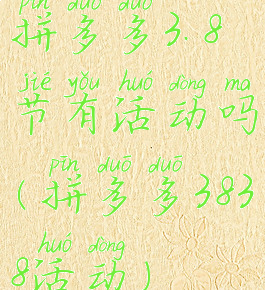 pīn duō duō
拼多多3.8
jié yǒu huó dòng ma
节有活动吗
pīn duō duō
(拼多多383
huó dòng
8活动)